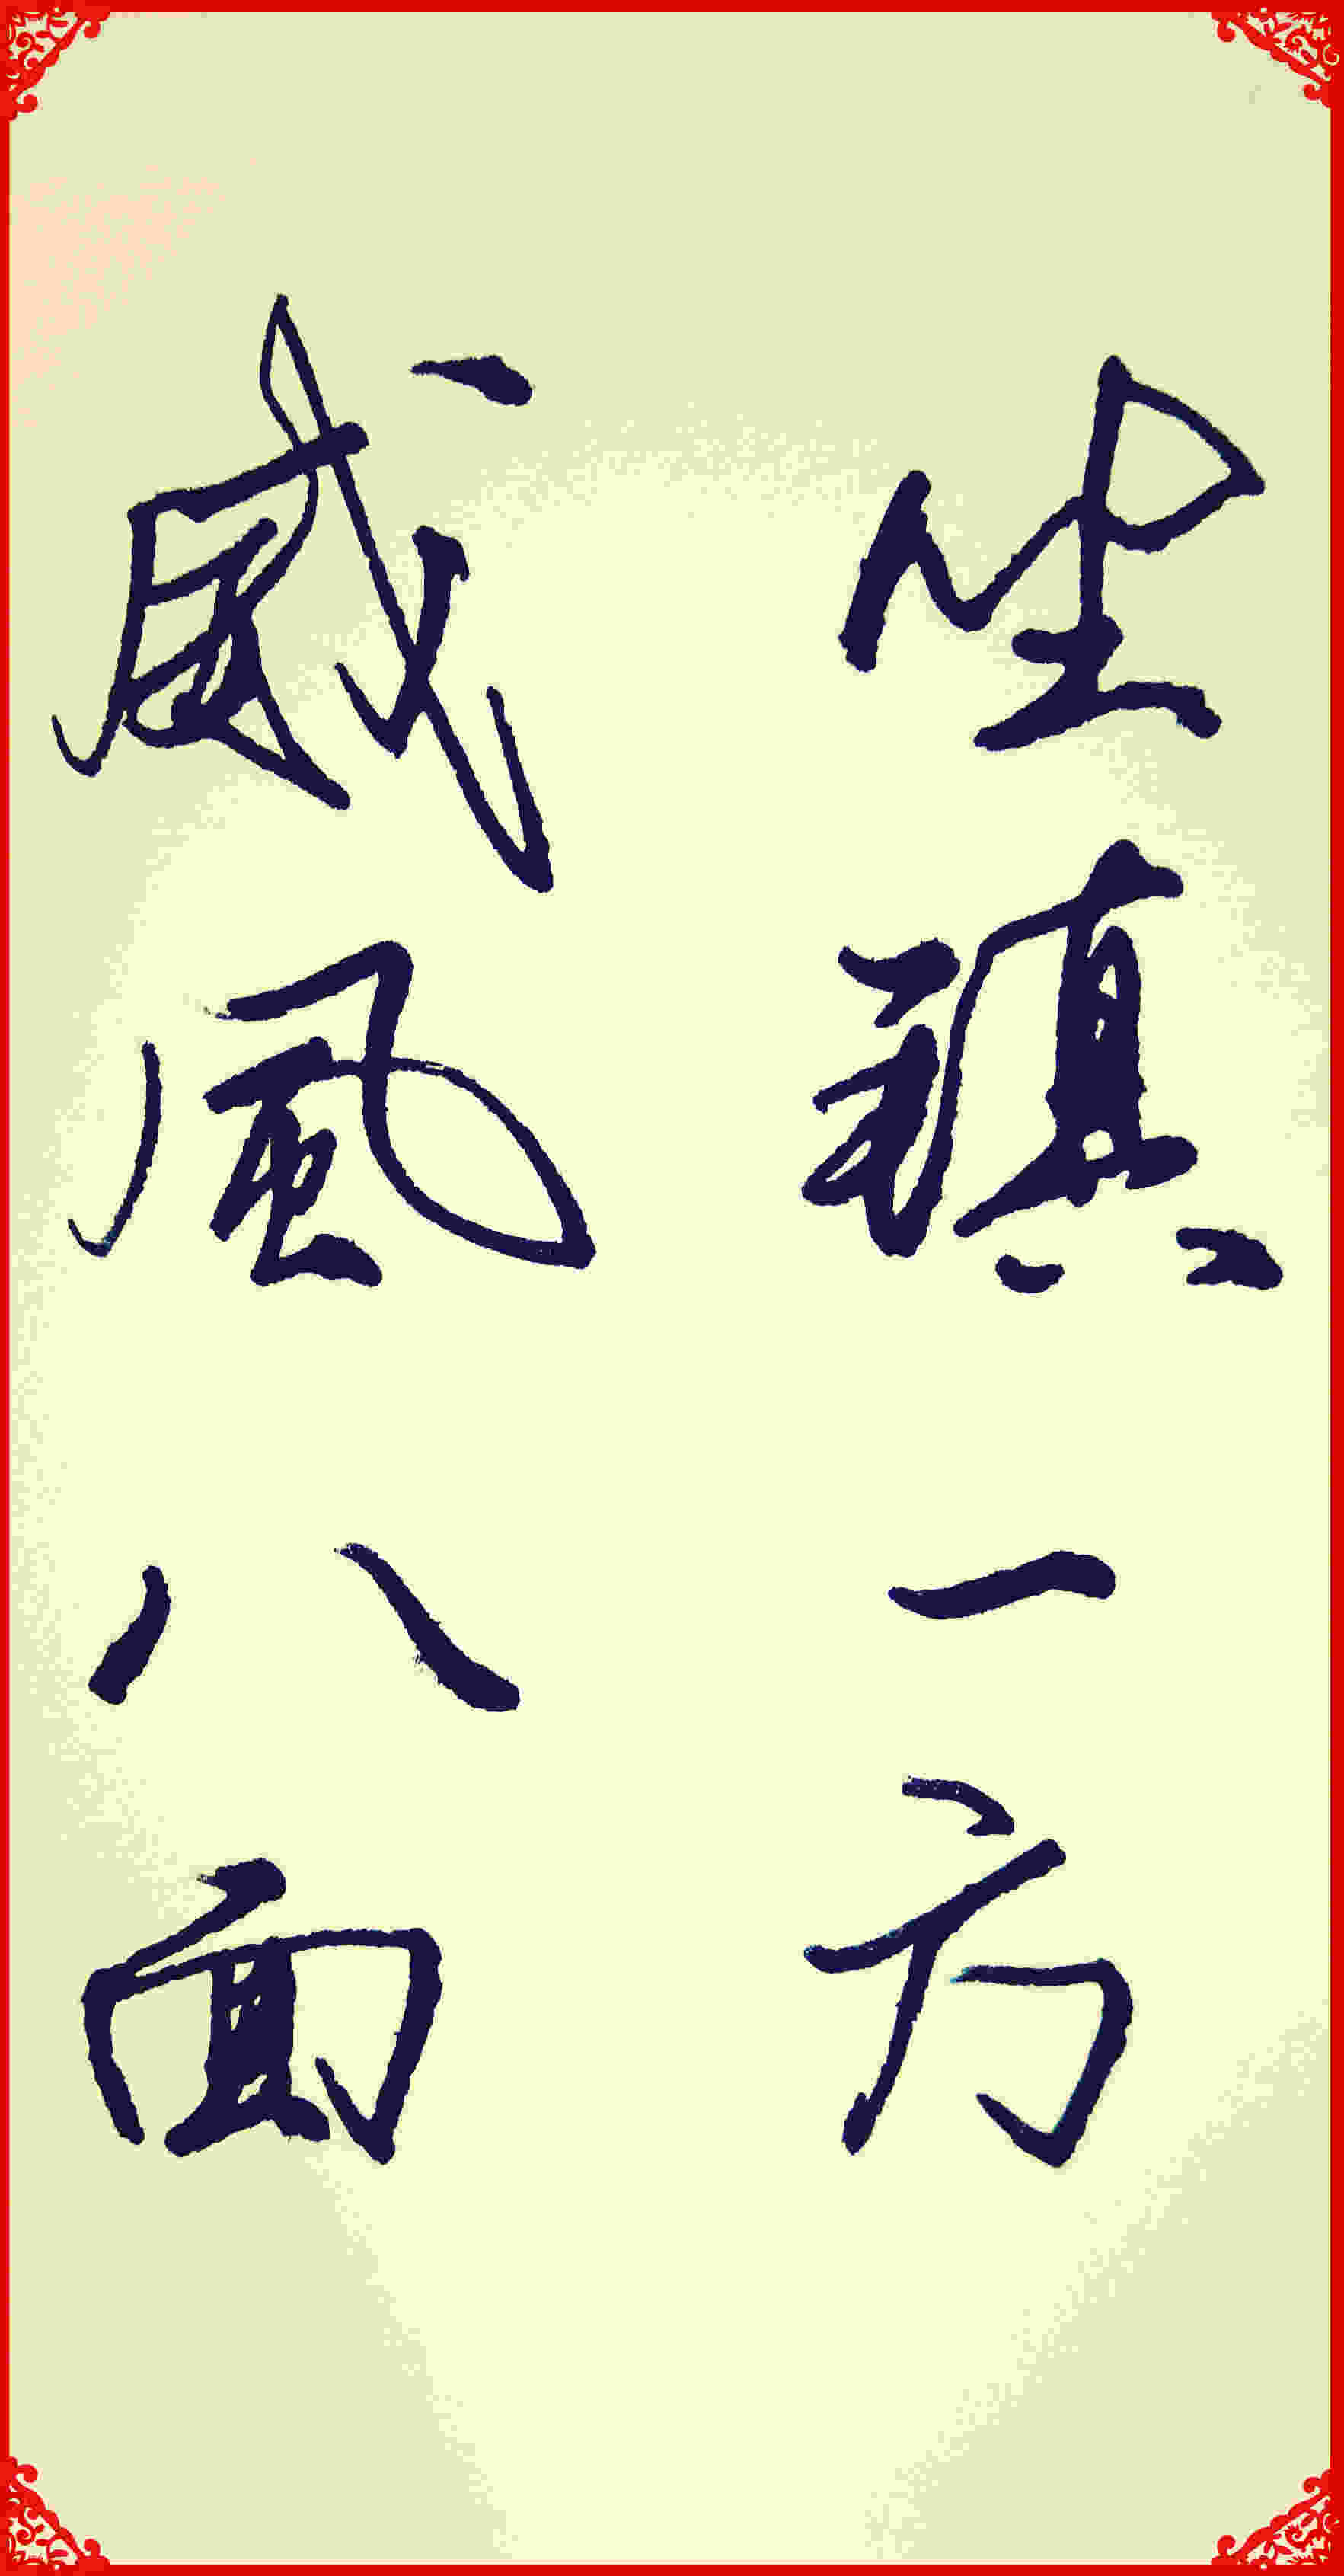 坐鎮一方
威風八面